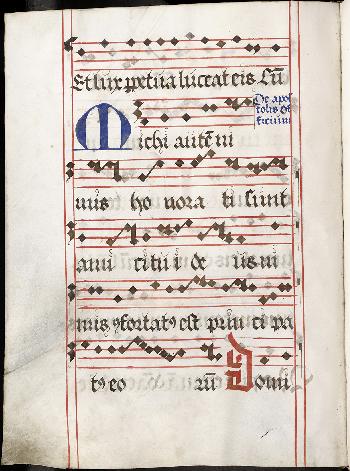 Et lux ꝑpetua luceat eis Cū
De apos
tolis of
ficium
Michi autē ni
mis ho nora ti sunt
ami ci tu i de us ni
mis ꝯfortatꝰ est prin ci pa
tꝰ eo rū Domi